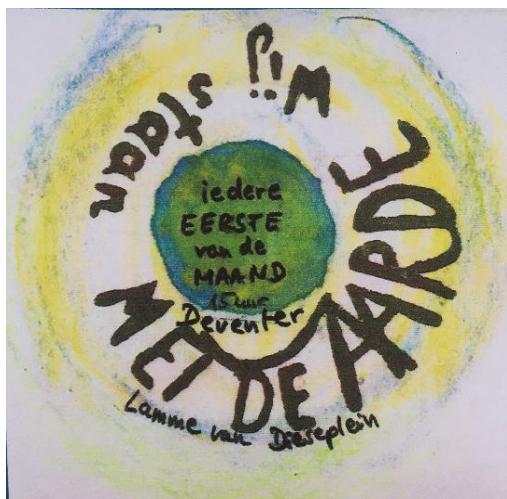 wij
staan
MET DE AARDE
iedere
EERSTE
van de
MAAND
15 uur
Deventer
Lamme van Dieseplein